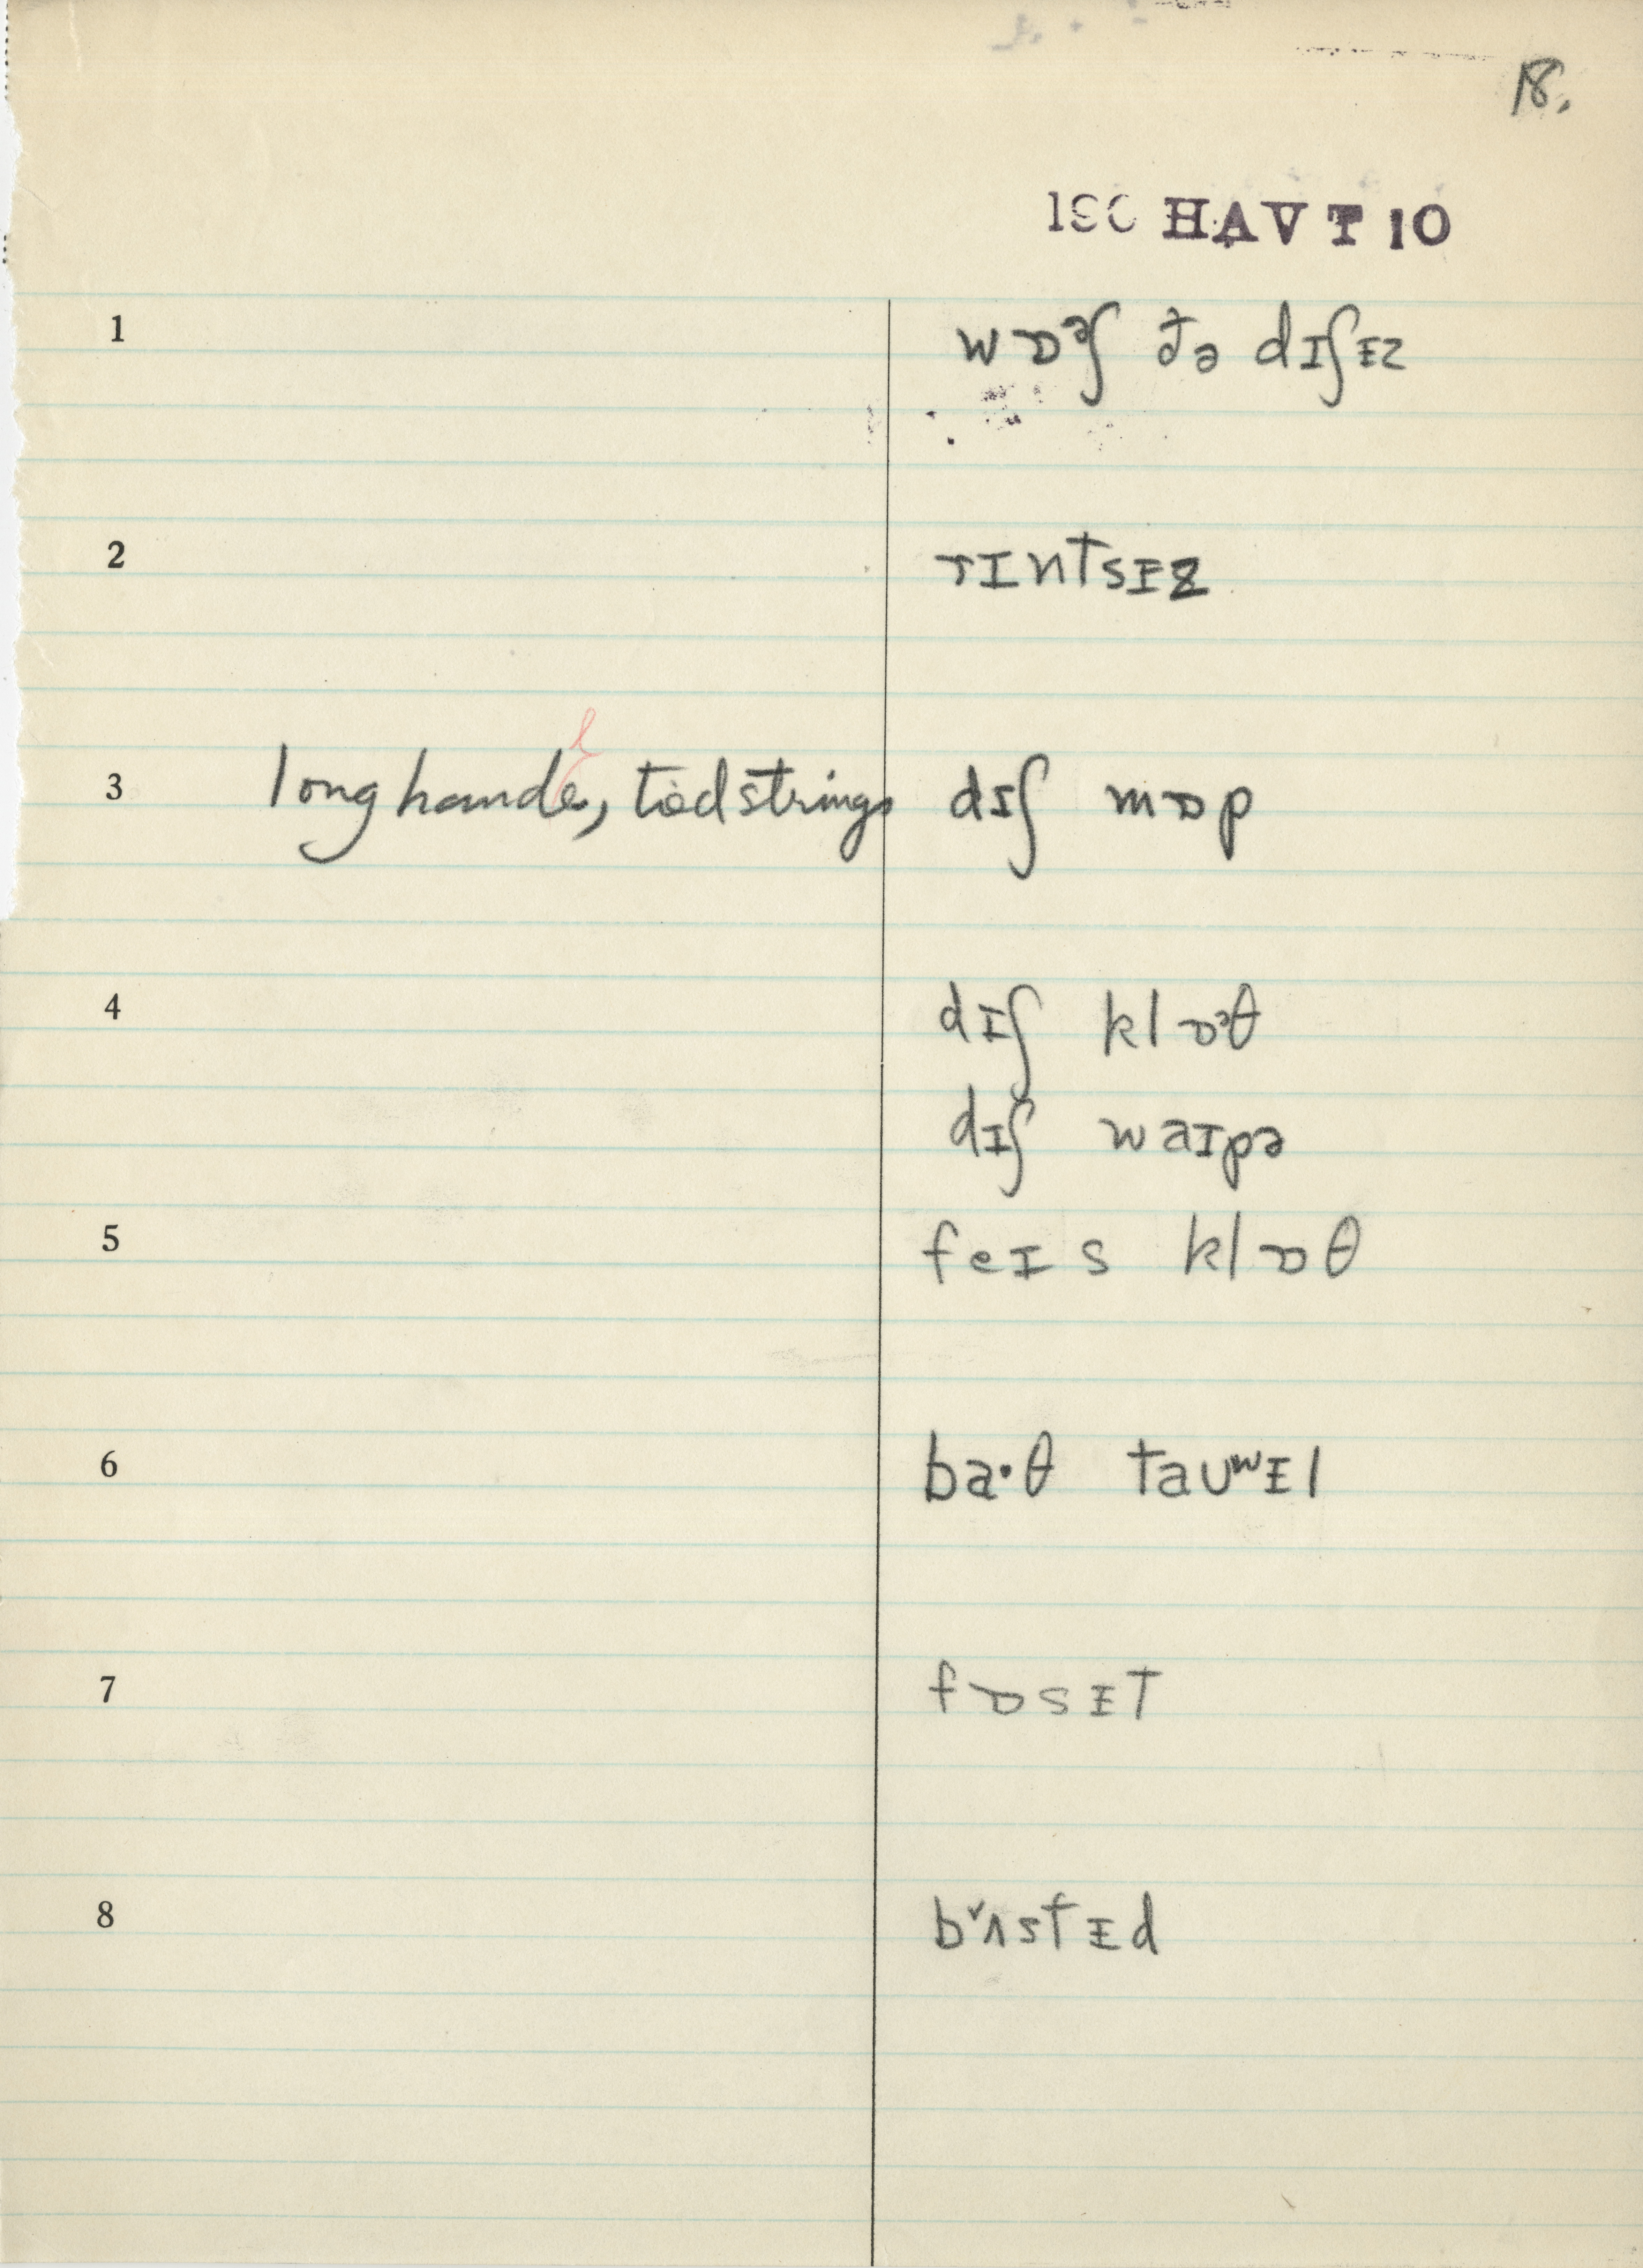 18.
190 HAVT 10
1 wɒᵊʃ ðə dɪʃᵻz
2 rɪntsᵻz
3 long hande, tiedstrings dɪʃ mɒp
l
4 dɪʃ klɒᵊθ
dɪʃ waɪpə
5 feɪs klɒθ
6 ba·θ taʊʷᵻl
7 fɒsᵻt
8 bɤʌstᵻd